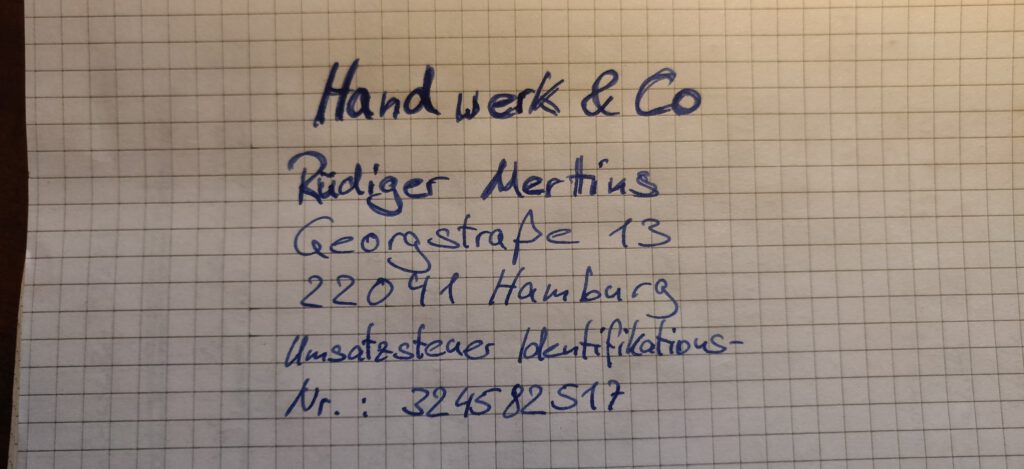 Handwerk & Co
Rüdiger Mertins
Georgstraße 13
22041 Hamburg
Umsatzsteuer Identifikations-
Nr.: 324582517